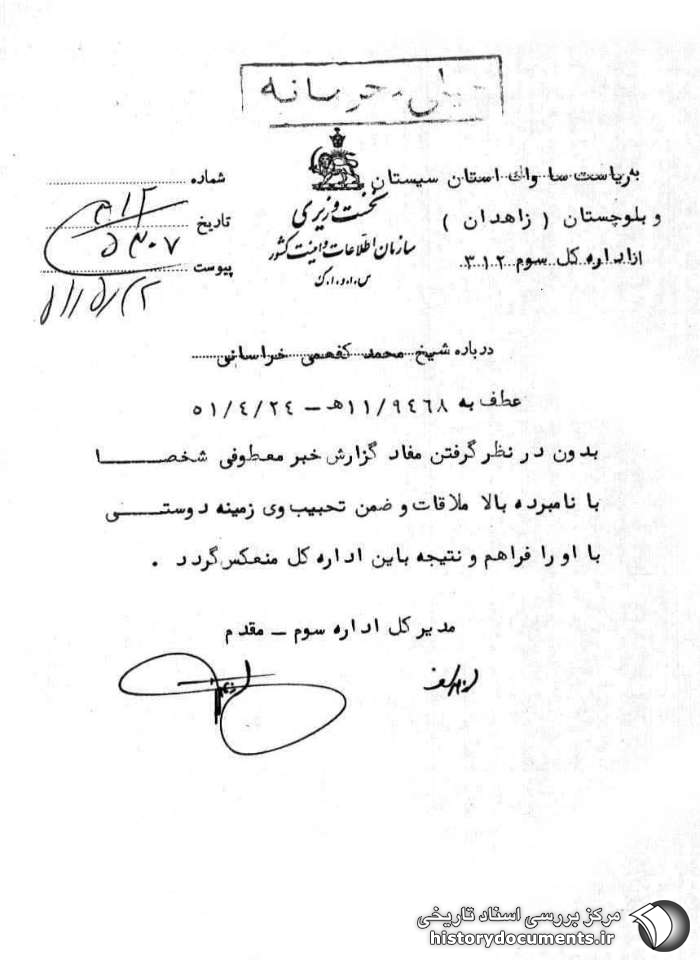 خیلی محرمانه
نخست وزیری
سازمان اطلاعات و امنیت کشور
س.ا.و.ا.ک
به ریاست ساواک استان سیستان
و بلوچستان ( زاهدان )
از اداره کل سوم ۳۱۲
شماره
۳۱۲
تاریخ
پیوست
درباره شیخ محمد کفعمی خراسانی
عطف به ۱۱/۹۴۶۸ه‍ – ۵۱/۴/۲۴
بدون در نظر گرفتن مفاد گزارش خبر معطوفی شخصا
با نامبرده بالا ملاقات و ضمن تحبیب وی زمینه دوستی
با او را فراهم و نتیجه باین اداره کل منعکس گردد .
مدیر کل اداره سوم – مقدم
مرکز بررسی اسناد تاریخی
historydocuments.ir